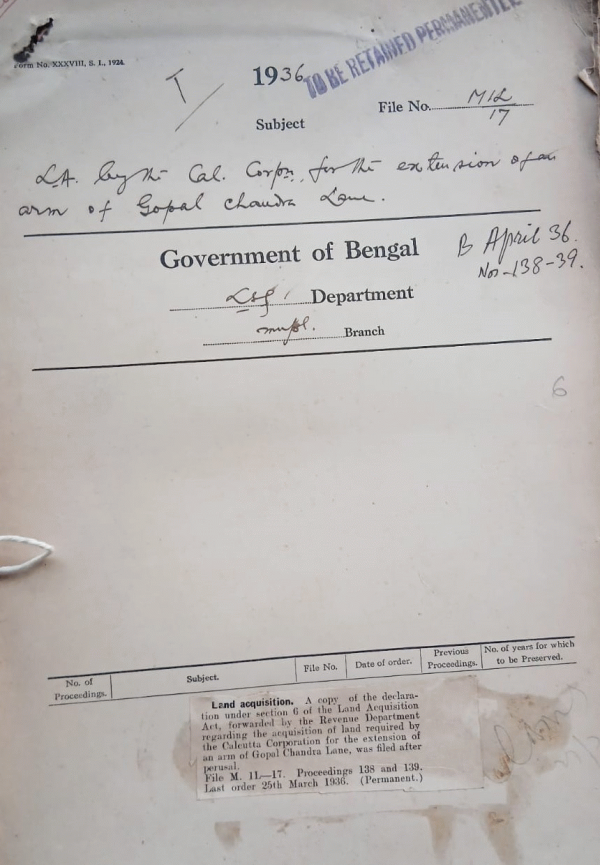 Form No. XXXVIII, S. I., 1924.
TO BE RETAINED PERMANENTLY
T
1936
File No. M1L
17
Subject
L.A. by the Cal. Corpn. for the extension of an
arm of Gopal Chandra Lane.
B April 36.
Nos-138-39.
Government of Bengal
LSG Department
Mupl. Branch
6
No. of Proceedings.
Subject.
File No.
Date of order.
Previous Proceedings.
No. of years for which to be Preserved.
Land acquisition. A copy of the declara-
tion under section 6 of the Land Acquisition
Act, forwarded by the Revenue Department
regarding the acquisition of land required by
the Calcutta Corporation for the extension of
an arm of Gopal Chandra Lane, was filed after
perusal.
File M. 11.—17. Proceedings 138 and 139.
Last order 25th March 1936. (Permanent.)